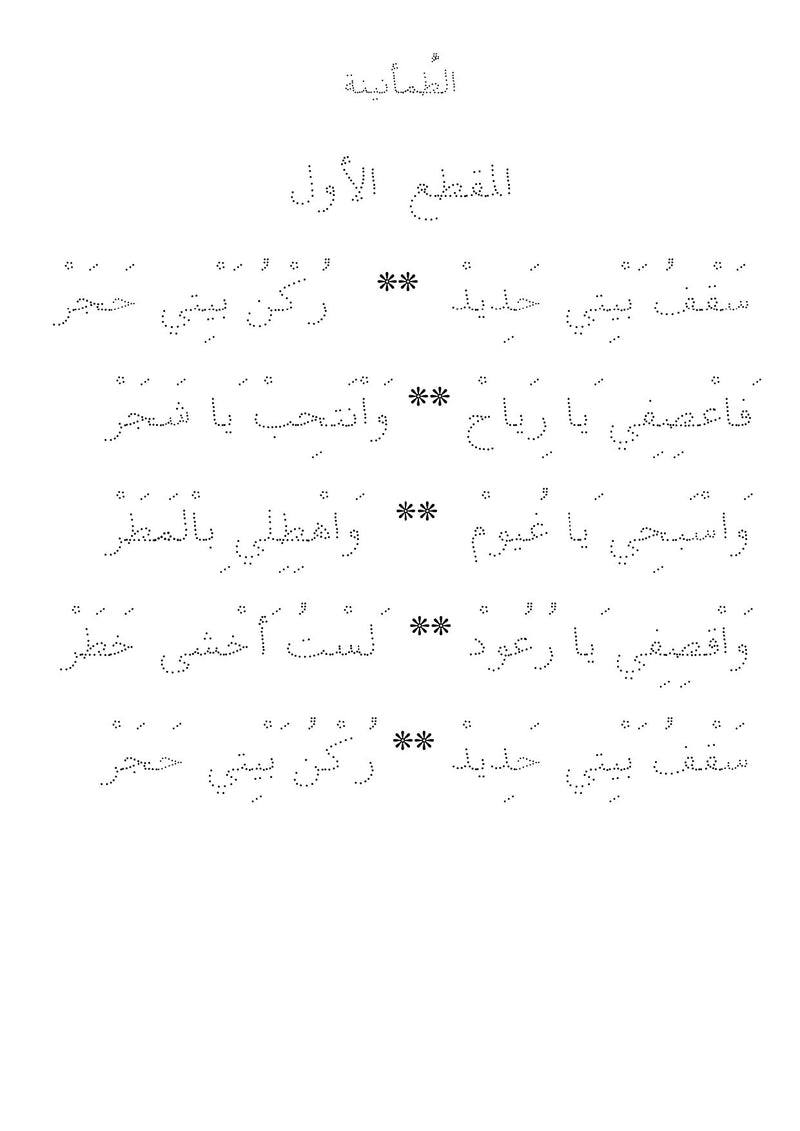 الطُّمأنينة
المقطع الأول
سَقْفُ بَيْتِي حَدِيدْ ** رُكْنُ بَيْتِي حَجَرْ
فَاعْصِفِي يَا رِيَاحْ ** وَانْتَحِبْ يَا شَجَرْ
وَاسْبَحِي يَا غُيومْ ** وَاهْطِلِي بِالْمَطَرْ
وَاقْصِفِي يَا رُعُودْ ** لَسْتُ أَخْشى خَطَرْ
سَقْفُ بَيْتِي حَدِيدْ ** رُكْنُ بَيْتِي حَجَرْ